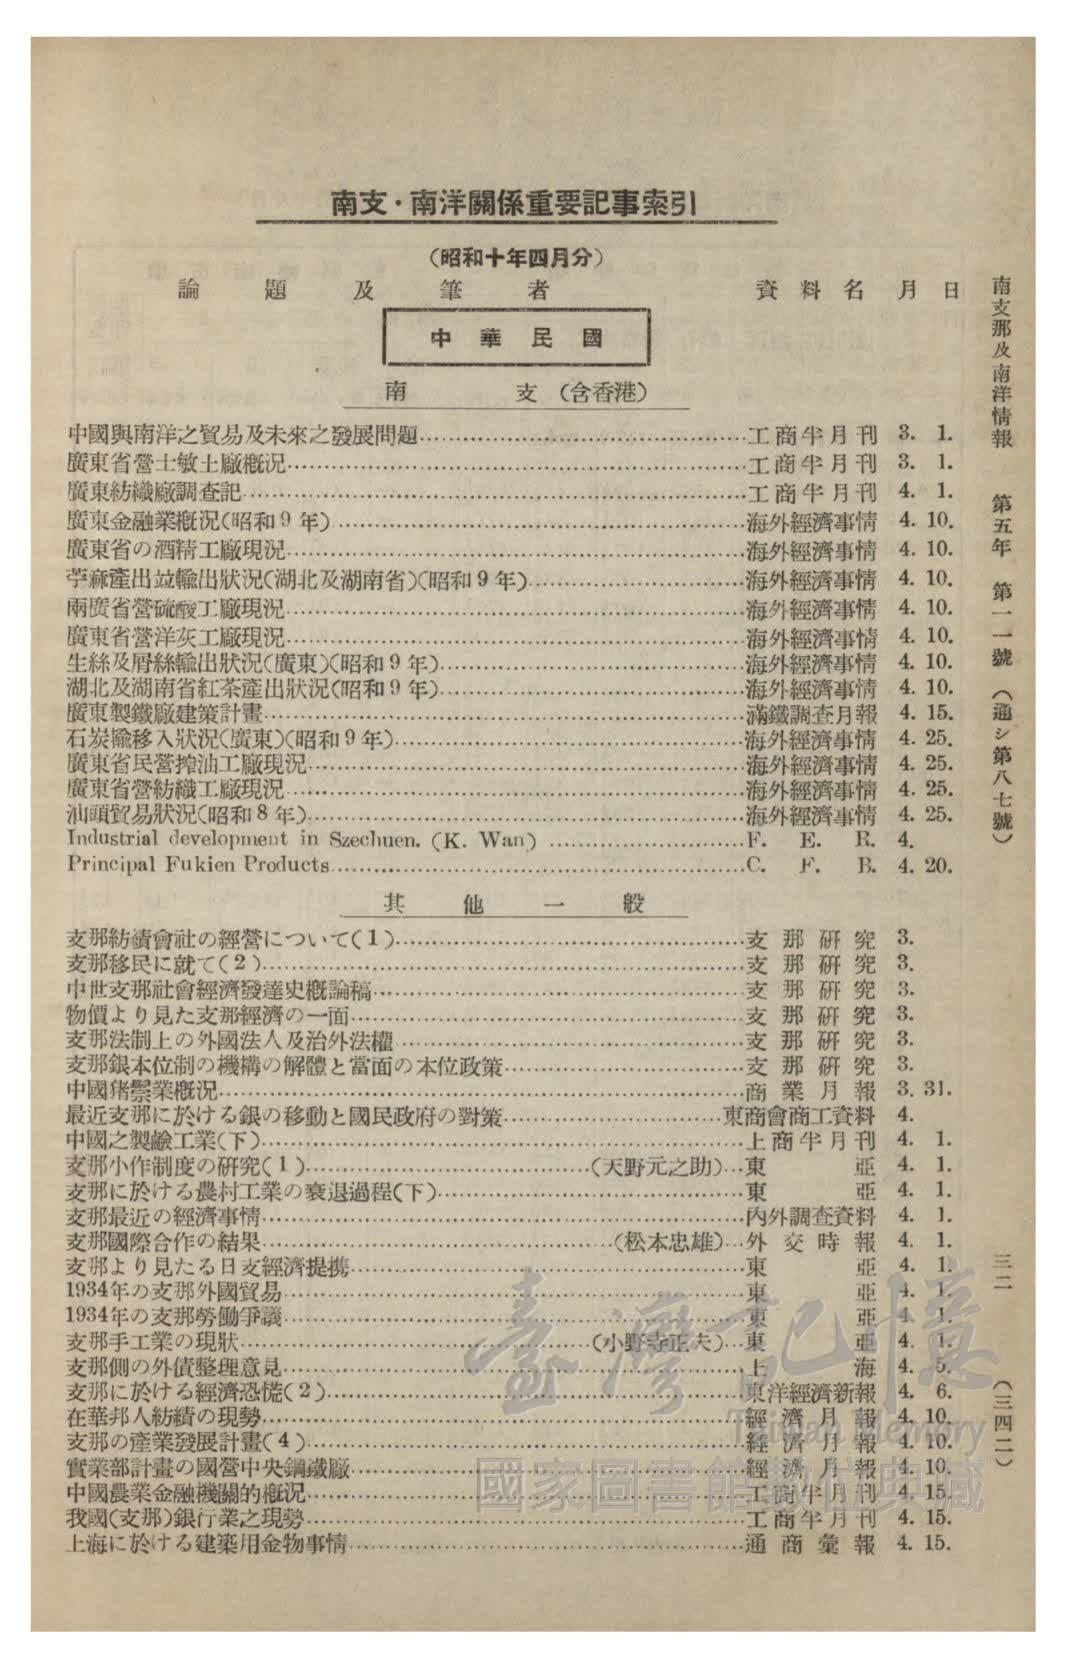 南支・南洋關係重要記事索引
(昭和十年四月分)
論題及筆者 資料名 月日
中華民國
南支(含香港)
中國與南洋之貿易及未來之發展問題……工商半月刊 3. 1.
廣東省營士敏土廠概況……工商半月刊 3. 1.
廣東紡織廠調查記……工商半月刊 4. 1.
廣東金融業概況(昭和9年)……海外經濟事情 4. 10.
廣東省の酒精工廠現況……海外經濟事情 4. 10.
苧麻產出竝輸出狀況(湖北及湖南省)(昭和9年)……海外經濟事情 4. 10.
兩廣省營硫酸工廠現況……海外經濟事情 4. 10.
廣東省營洋灰工廠現況……海外經濟事情 4. 10.
生絲及屑絲輸出狀況(廣東)(昭和9年)……海外經濟事情 4. 10.
湖北及湖南省紅茶產出狀況(昭和9年)……海外經濟事情 4. 10.
廣東製鐵廠建築計畫……滿鐵調查月報 4. 15.
石炭輸移入狀況(廣東)(昭和9年)……海外經濟事情 4. 25.
廣東省民營搾油工廠現況……海外經濟事情 4. 25.
廣東省營紡織工廠現況……海外經濟事情 4. 25.
汕頭貿易狀況(昭和8年)……海外經濟事情 4. 25.
Industrial development in Szechuen. (K. Wan)……F. E. R. 4.
Principal Fukien Products……C. F. B. 4. 20.
其他一般
支那紡績會社の經營について(1)……支那硏究 3.
支那移民に就て(2)……支那硏究 3.
中世支那社會經濟發達史概論稿……支那硏究 3.
物價より見た支那經濟の一面……支那硏究 3.
支那法制上の外國法人及治外法權……支那硏究 3.
支那銀本位制の機構の解體と當面の本位政策……支那硏究 3.
中國猪鬃業概況……商業月報 3. 31.
最近支那に於ける銀の移動と國民政府の對策……東商會商工資料 4.
中國之製鹼工業(下)……工商半月刊 4. 1.
支那小作制度の硏究(1)……(天野元之助)…東亞 4. 1.
支那に於ける農村工業の衰退過程(下)……東亞 4. 1.
支那最近の經濟事情……內外調查資料 4. 1.
支那國際合作の結果……(松本忠雄)…外交時報 4. 1.
支那より見たる日支經濟提携……東亞 4. 1.
1934年の支那外國貿易……東亞 4. 1.
1934年の支那勞働爭議……東亞 4. 1.
支那手工業の現狀……(小野寺正夫)…東亞 4. 1.
支那側の外債整理意見……上海 4. 5.
支那に於ける經濟恐慌(2)……東洋經濟新報 4. 6.
在華邦人紡績の現勢……經濟月報 4. 10.
支那の產業發展計畫(4)……經濟月報 4. 10.
實業部計畫の國營中央鋼鐵廠……經濟月報 4. 10.
中國農業金融機關的概況……工商半月刊 4. 15.
我國(支那)銀行業之現勢……工商半月刊 4. 15.
上海に於ける建築用金物事情……通商彙報 4. 15.
南支那及南洋情報 第五年 第一一號 (通シ第八七號)
三二
(三四二)
臺灣記憶
Taiwan Memory
國家圖書館數位典藏